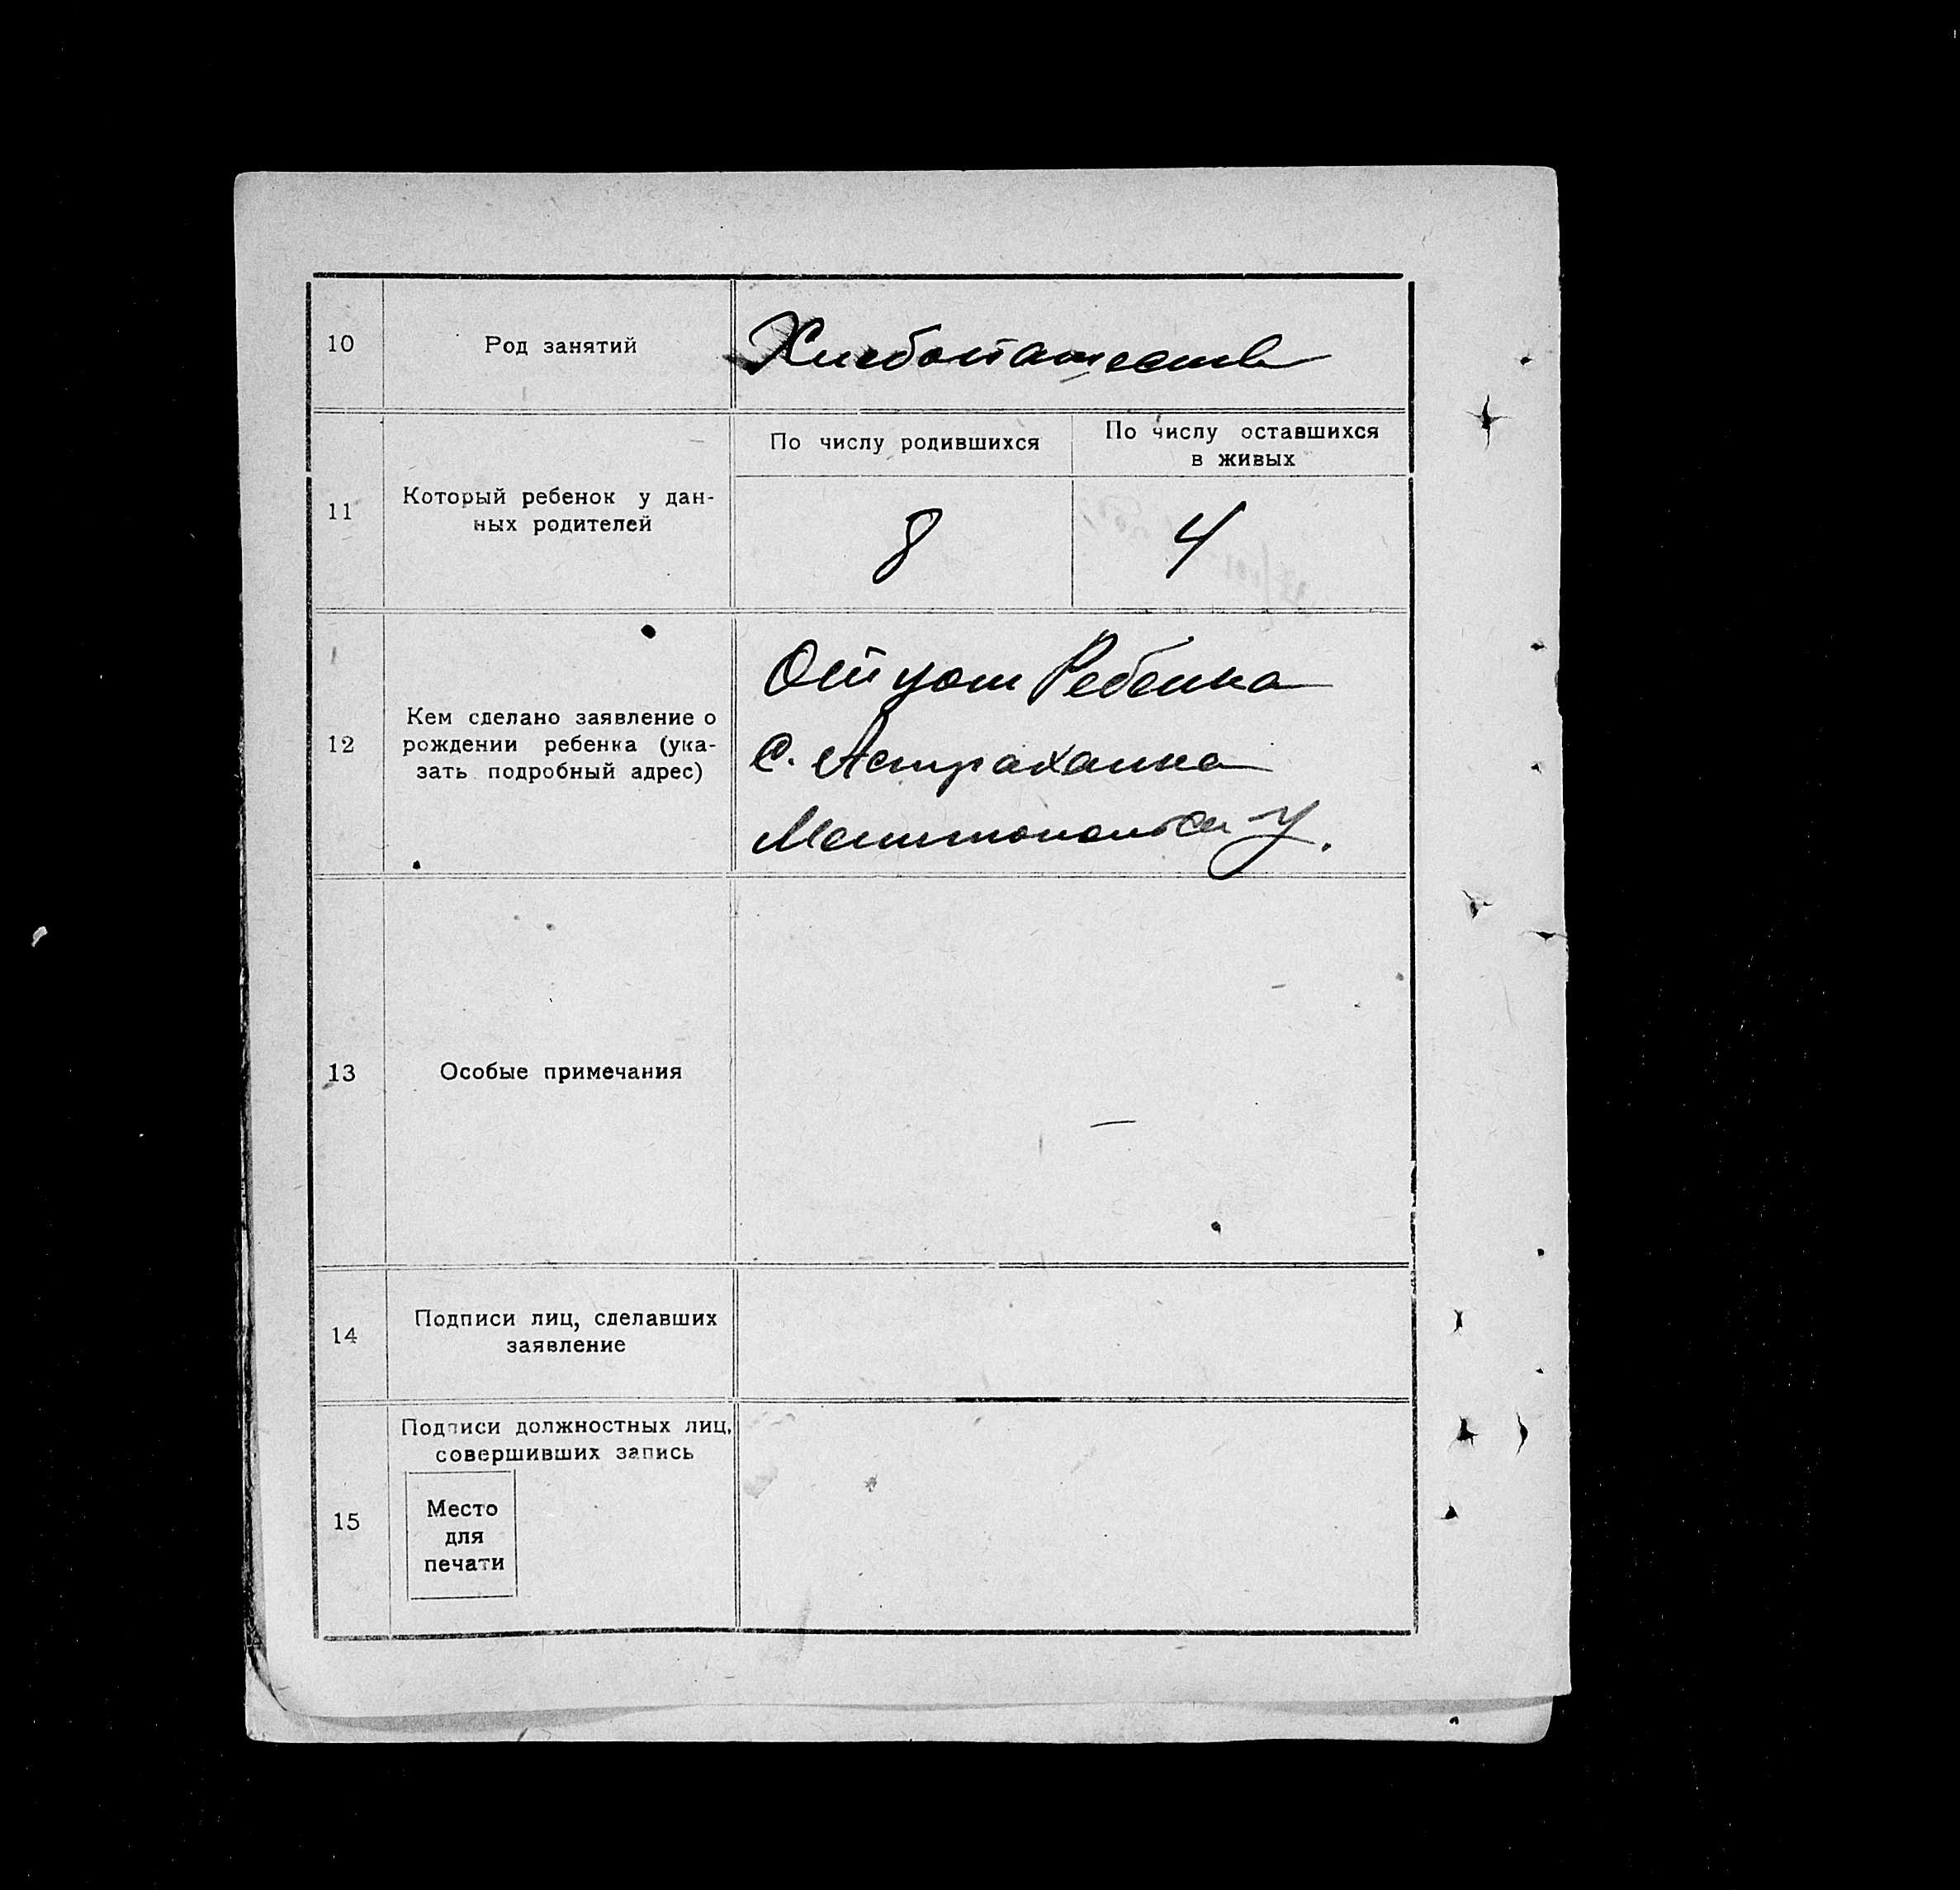 10
Род занятий
Хлебопашеств
По числу родившихся
По числу оставшихся
в живых
11
Который ребенок у дан-
ных родителей
8
4
12
Кем сделано заявление о
рождении ребенка (ука-
зать подробный адрес)
Отцом Ребенка
С. Астраханка
Мелитопольск У.
13
Особые примечания
—
14
Подписи лиц, сделавших
заявление
15
Подписи должностных лиц,
совершивших запись
Место
для
печати